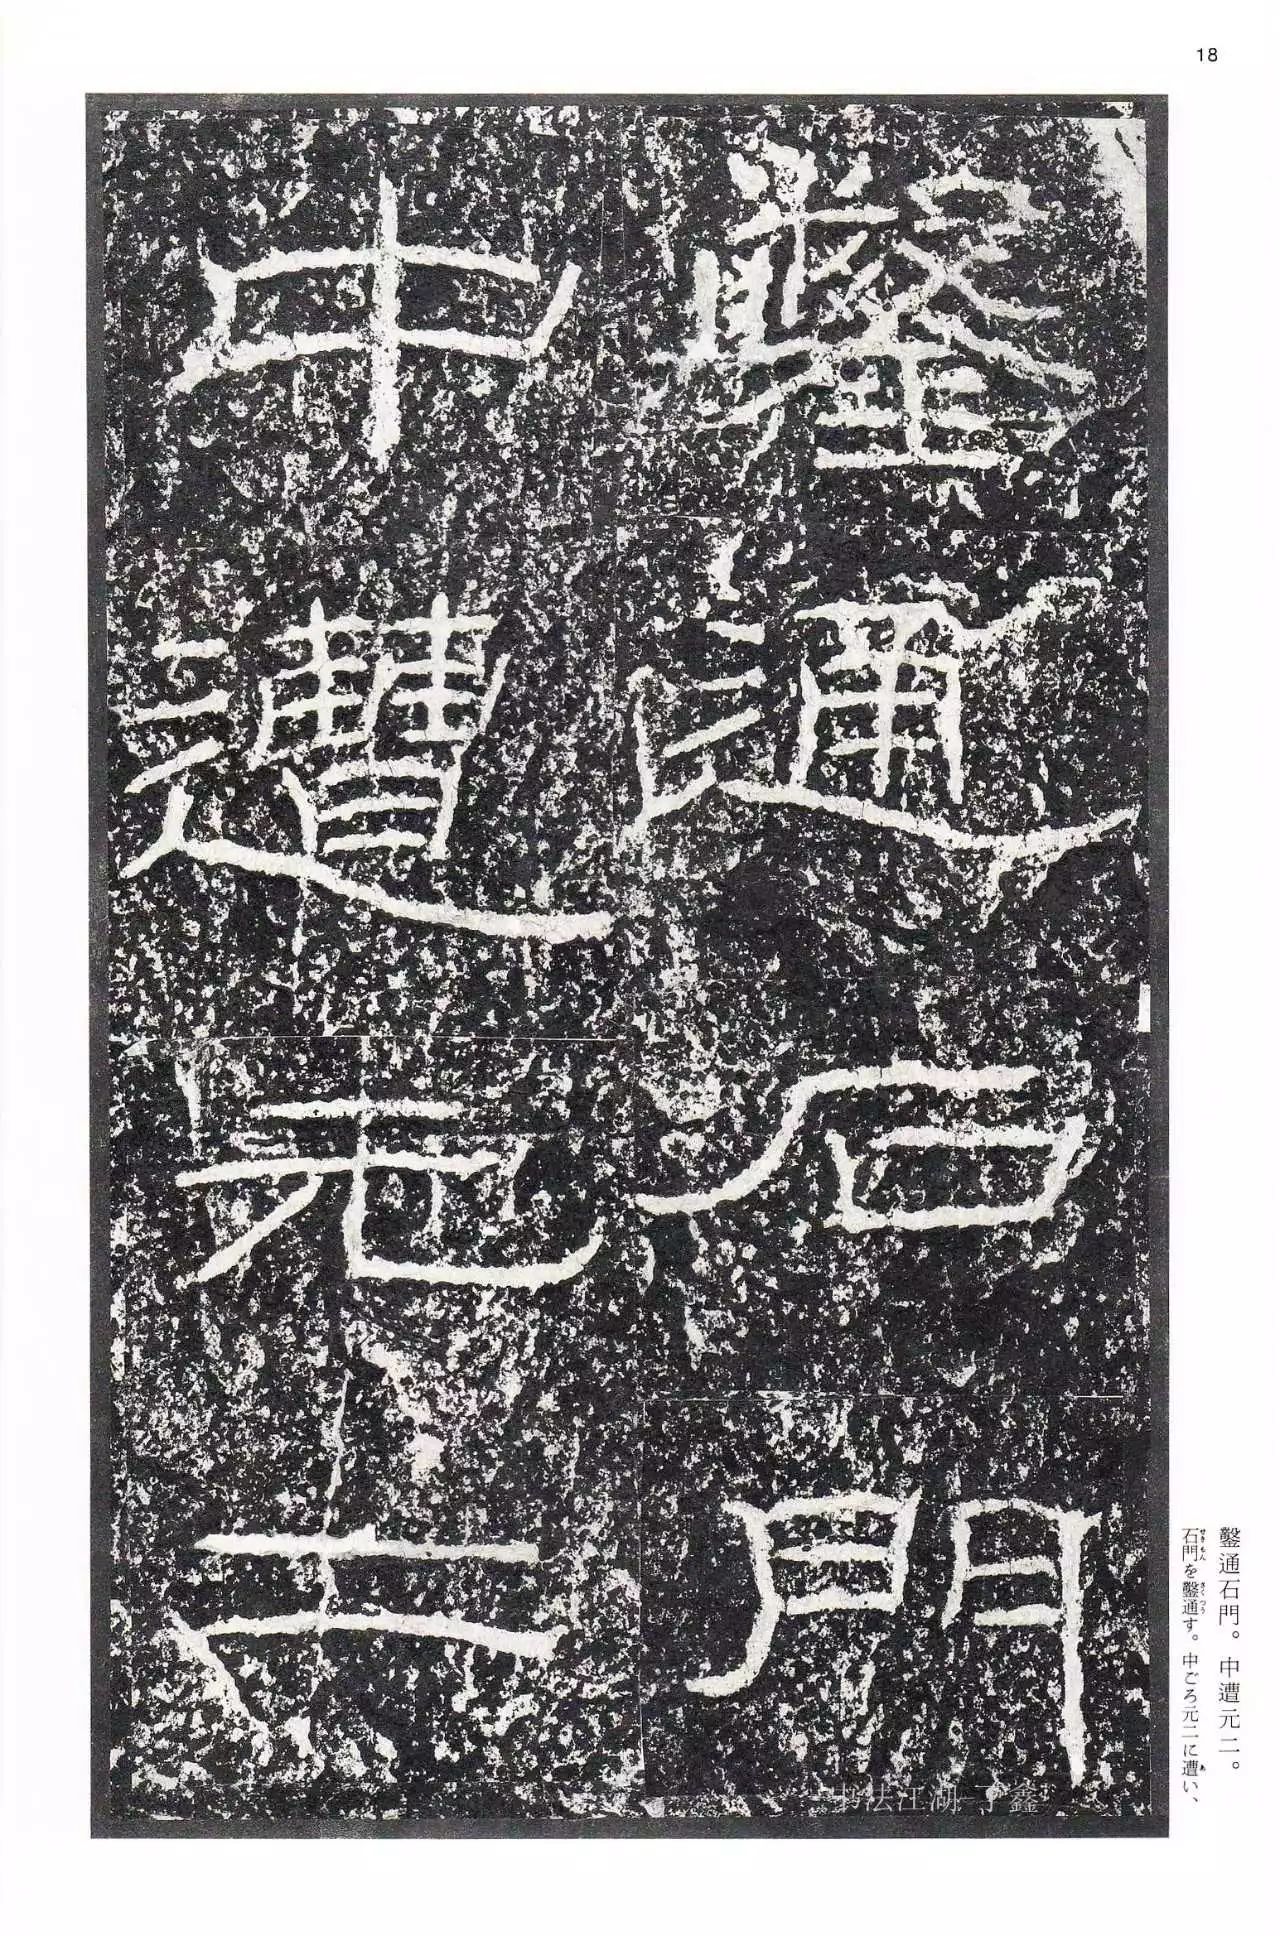 18
鑿通石門
中遭元二
鑿通石門。中遭元二。
石門を鑿通す。中ごろ元二に遭い、
书法江湖